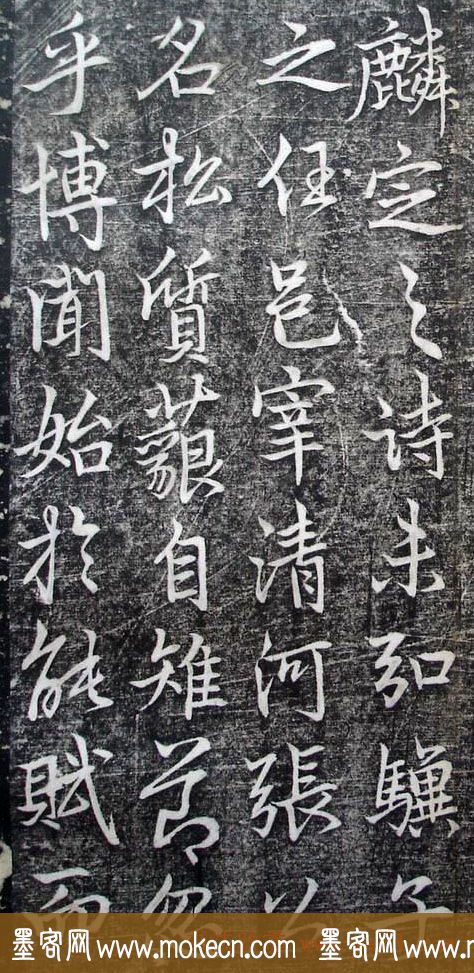 麟定之詩未弘驥子
之任邑宰清河張公
名松質藐自雉節忽
乎博聞始於能賦而
墨客网www.mokecn.com 墨客网www.m